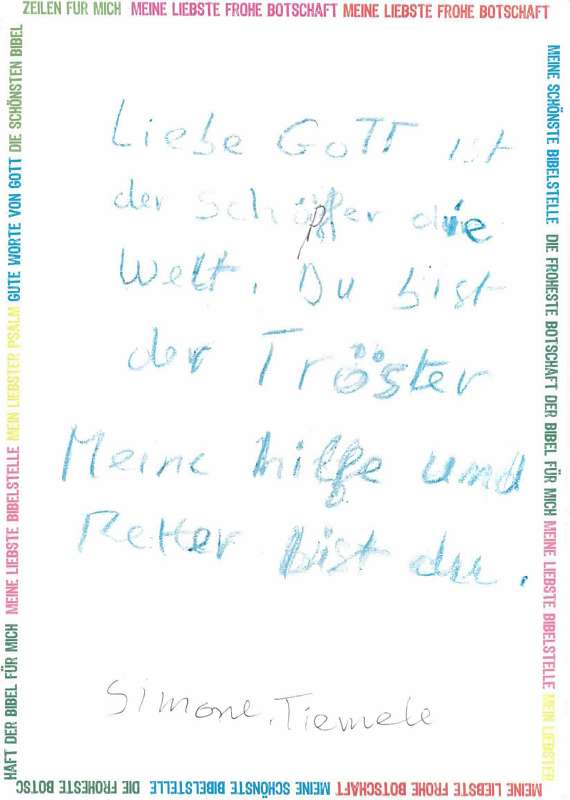 ZEILEN FÜR MICH MEINE LIEBSTE FROHE BOTSCHAFT MEINE LIEBSTE FROHE BOTSCHAFT
MEINE SCHÖNSTE BIBELSTELLE DIE FROHESTE BOTSCHAFT DER BIBEL FÜR MICH MEINE LIEBSTE BIBELSTELLE MEIN LIEBSTER
Liebe GoTT ist
der schöpfer die
Welt. Du bist
der Tröster
Meine hilfe und
Retter bist du.
Simone, Tiemele
MEINE LIEBSTE FROHE BOTSCHAFT MEINE SCHÖNSTE BIBELSTELLE DIE FROHESTE BOTSC
HAFT DER BIBEL FÜR MICH MEINE LIEBSTE BIBELSTELLE MEIN LIEBSTER PSALM GUTE WORTE VON GOTT DIE SCHÖNSTEN BIBEL